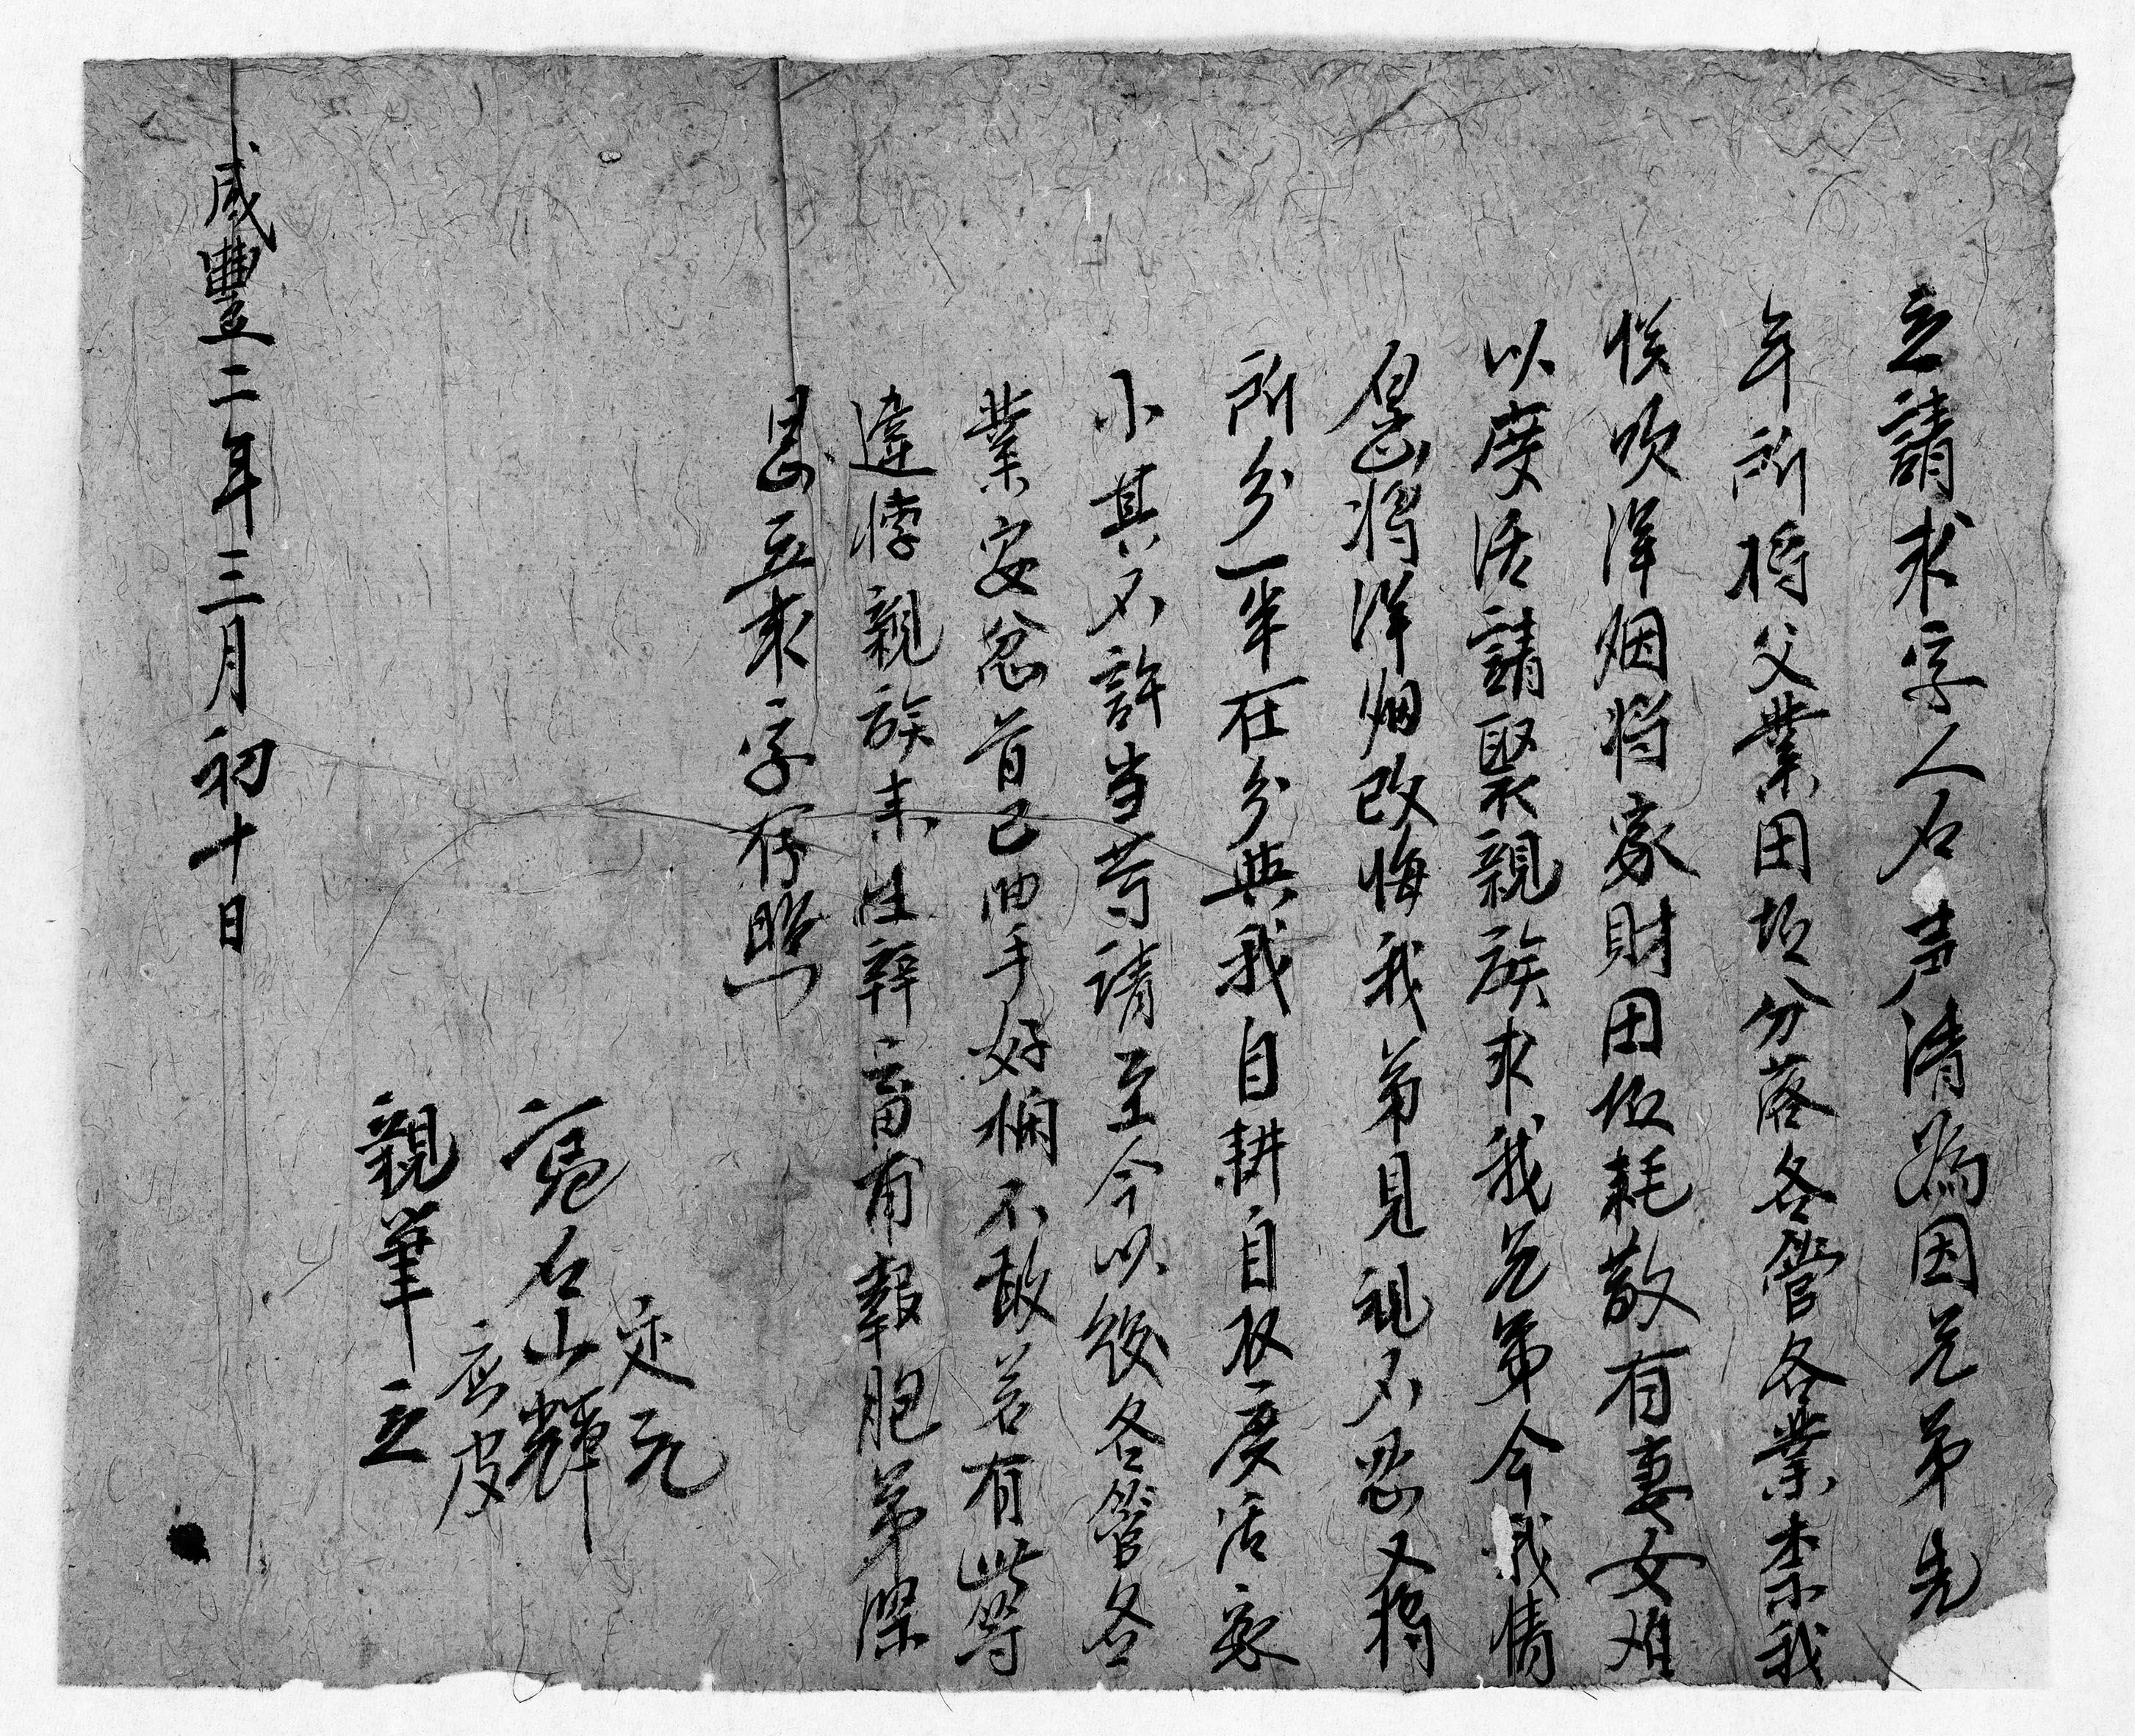 立請求字人石声清為因兄弟先
年所將父業田坵分落各管各業柰我
悞吹洋烟將家財田坵耗散有妻女难
以度活請聚親族求我兄弟今我情
愿將洋烟改悔我弟見視不忍又將
所分一半在分與我自耕自收度活家
小其不許当苛請至今以後各管各
業安忿首已曲手好闲不敢若有此等
違悖親族未生辞畜甫報胞弟深
恩立求字存照
定元
憑石山輝
唐皮
親筆立
咸豐二年三月初十日